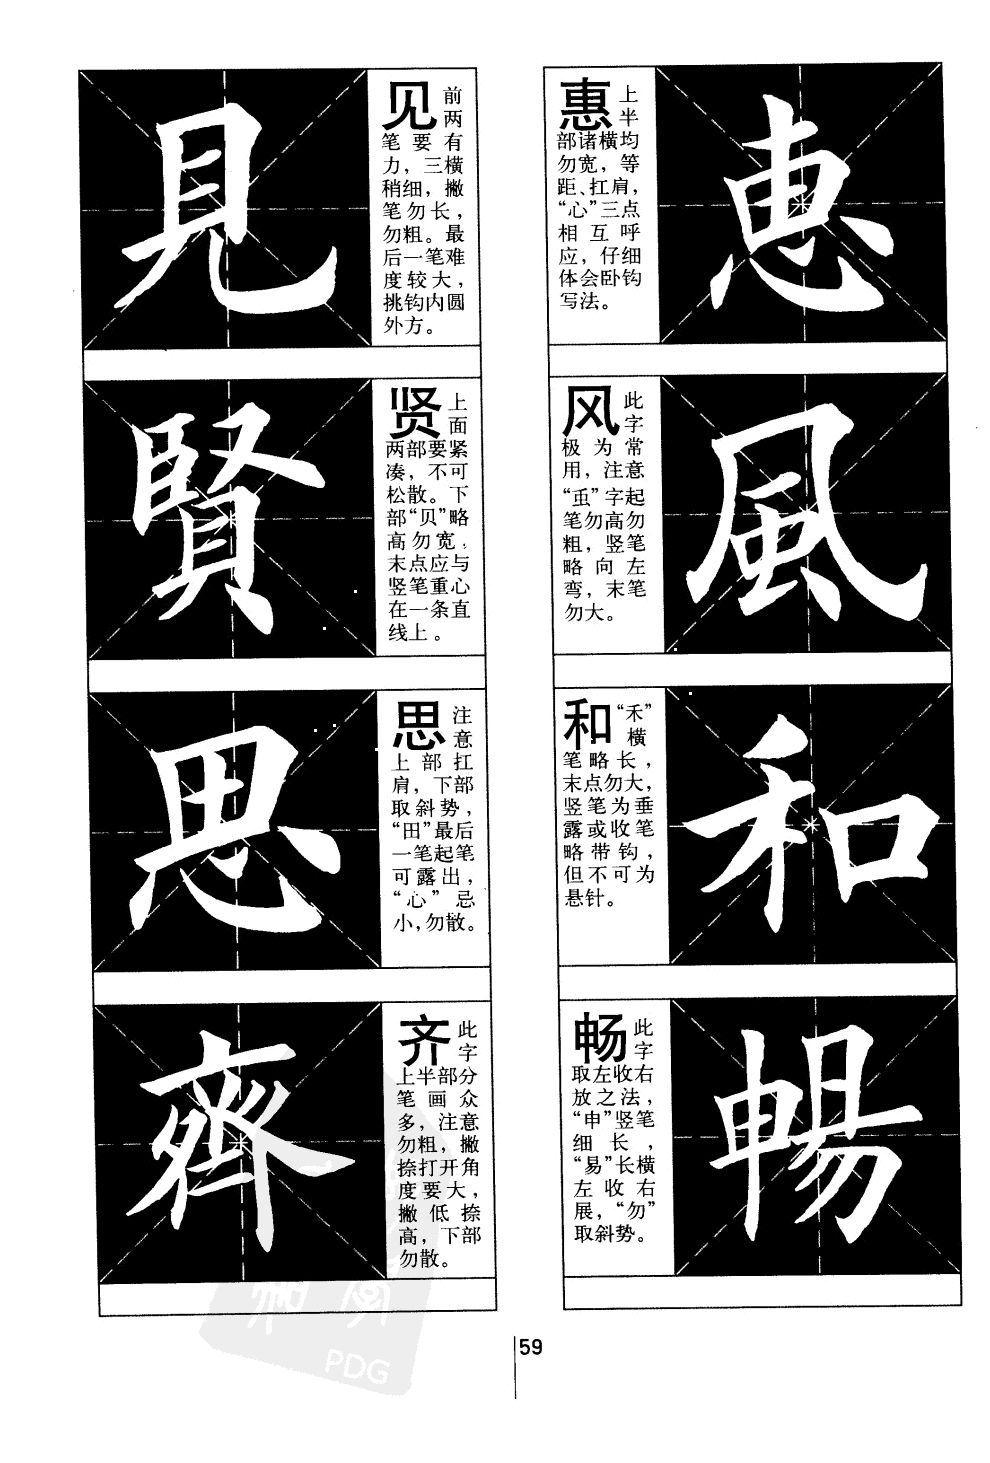 見
见 前
两
笔要有
力，三横
稍细，撇
笔勿长，
勿粗。最
后一笔难
度较大，
挑钩内圆
外方。
賢
贤 上
面
两部要紧
凑，不可
松散。下
部“贝”略
高勿宽，
末点应与
竖笔重心
在一条直
线上。
思
思 注
意
上部扛
肩，下部
取斜势，
“田”最后
一笔起笔
可露出，
“心”忌
小，勿散。
齊
齐 此
字
上半部分
笔画众
多，注意
勿粗，撇
捺打开角
度要大，
撇低捺
高，下部
勿散。
惠 上
半
部诸横均
勿宽，等
距、扛肩，
“心”三点
相互呼
应，仔细
体会卧钩
写法。
惠
风 此
字
极为常
用，注意
“䖝”字起
笔勿高勿
粗，竖笔
略向左
弯，末笔
勿大。
風
和 “禾”
横
笔略长，
末点勿大，
竖笔为垂
露或收笔
略带钩，
但不可为
悬针。
和
畅 此
字
取左收右
放之法，
“申”竖笔
细长，
“易”长横
左收右
展，“勿”
取斜势。
暢
59
PDG